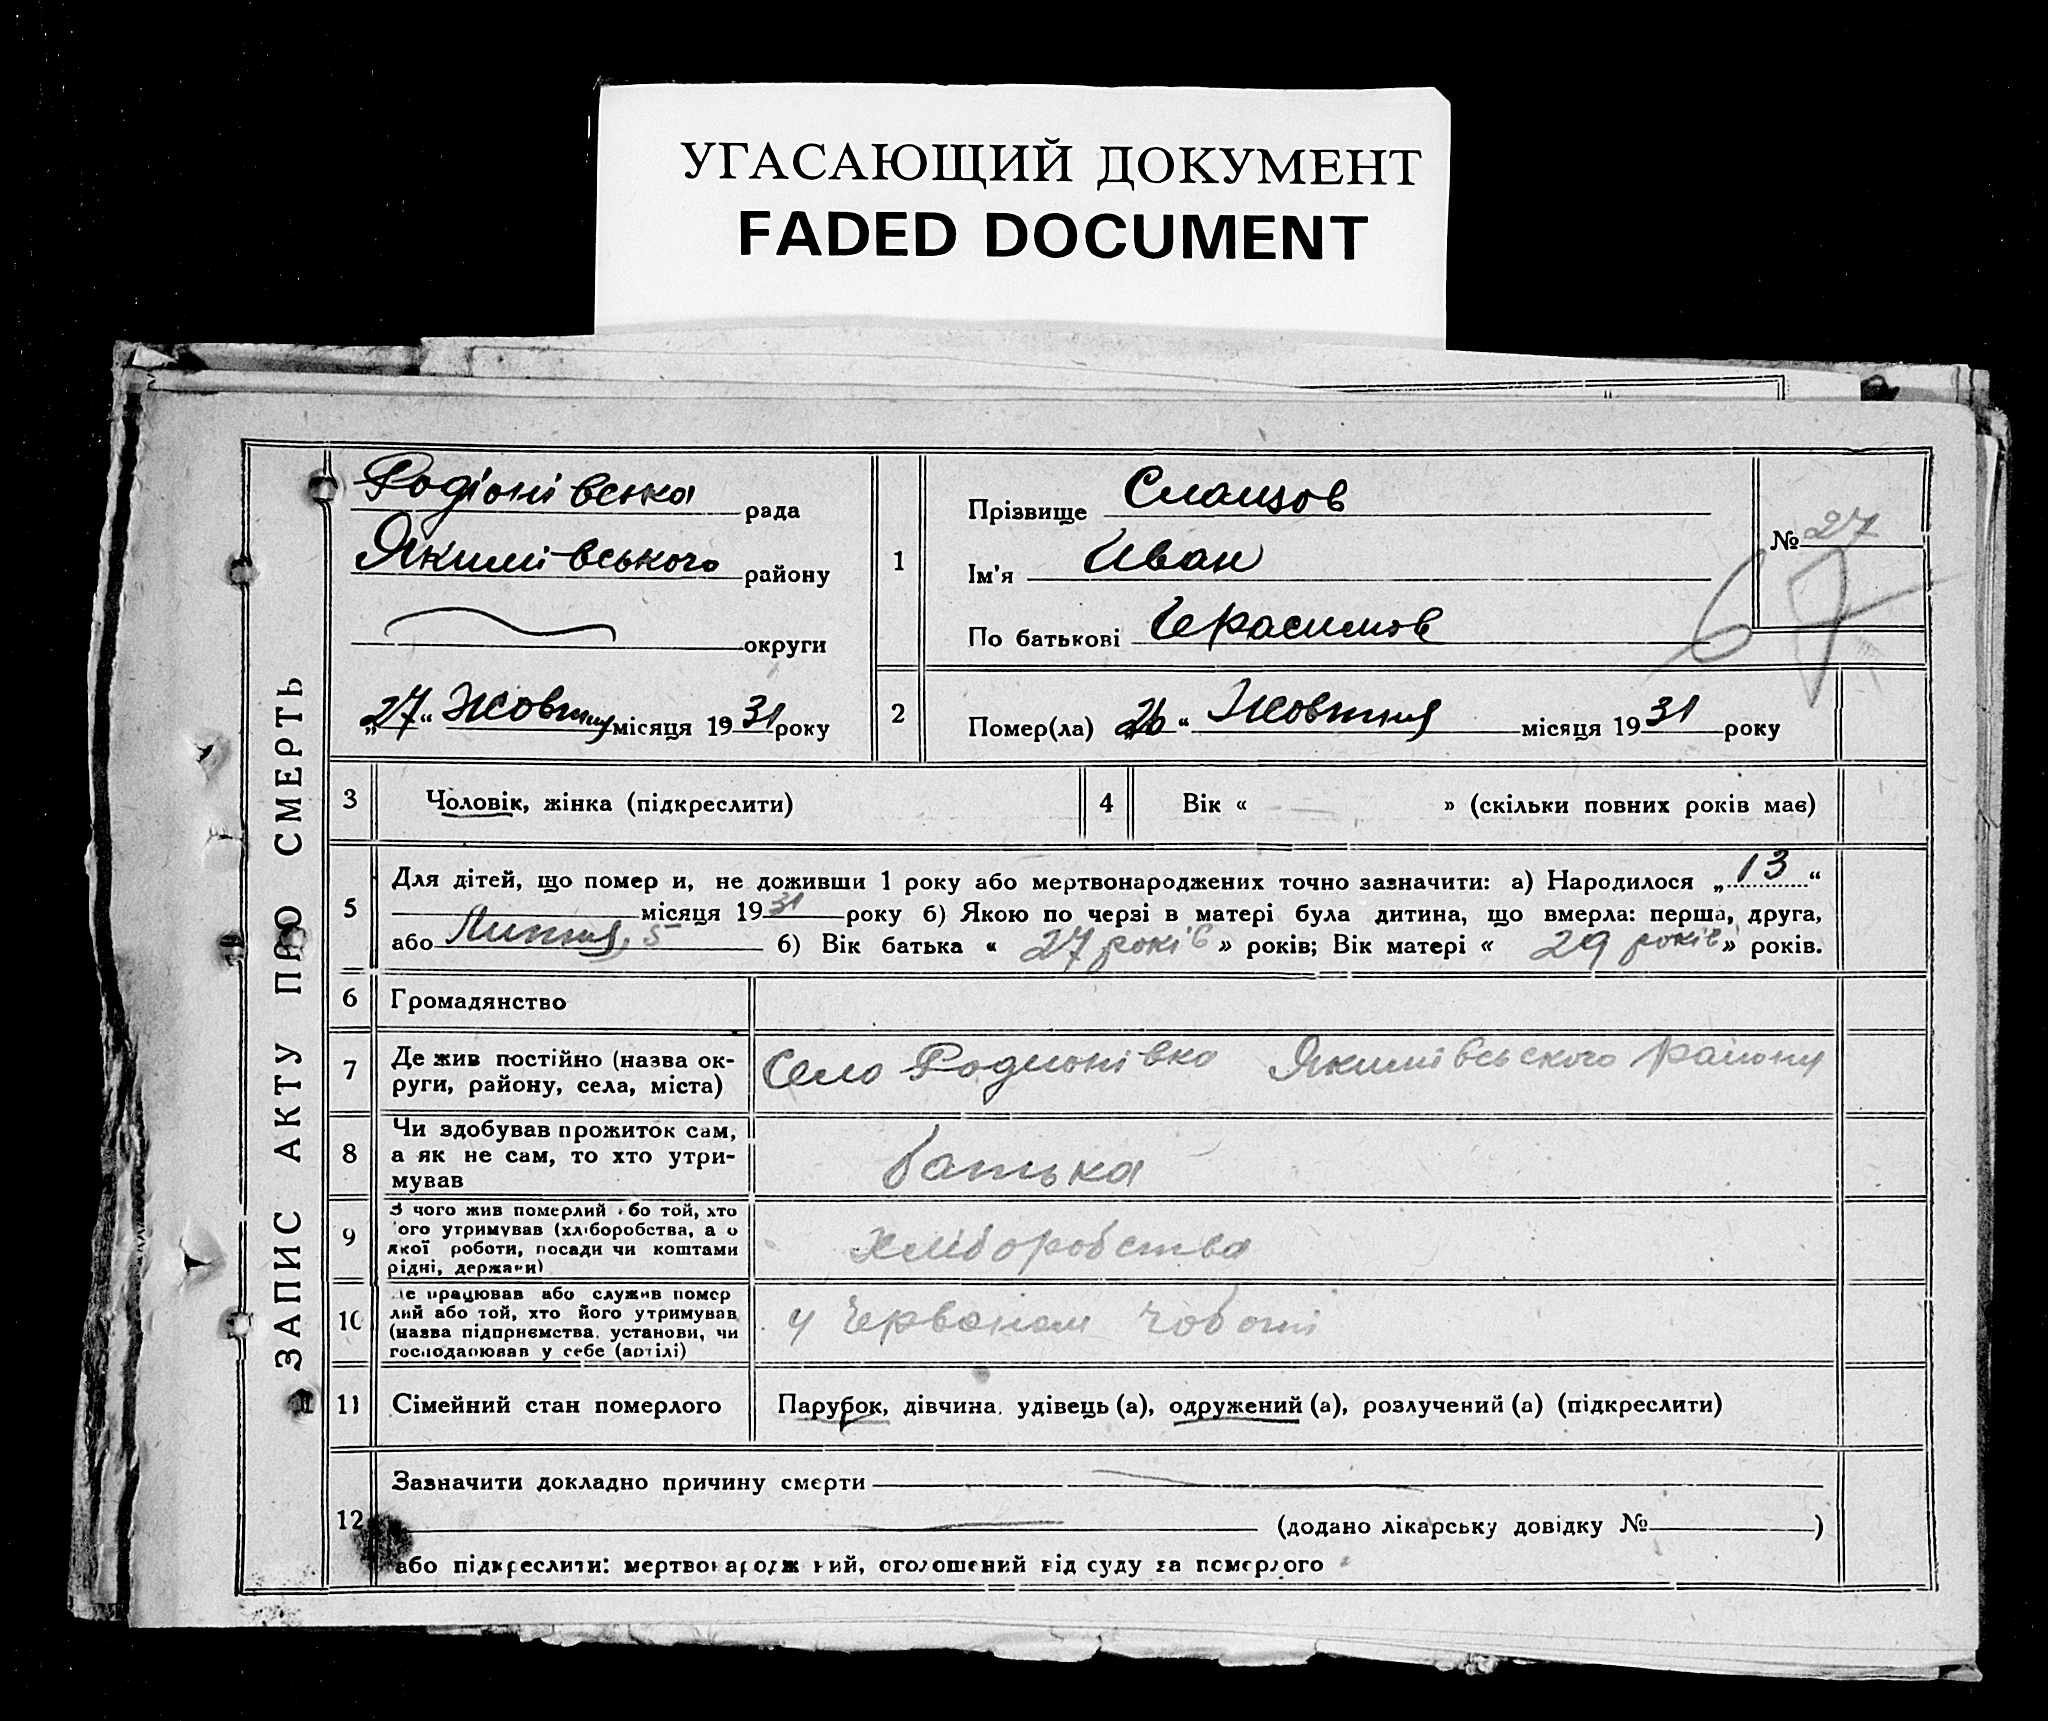 УГАСАЮЩИЙ ДОКУМЕНТ
FADED DOCUMENT
ЗАПИС АКТУ ПРО СМЕРТЬ
Родіонівська рада
Якимівського району
округи
„27“ Жовтня місяця 1931 року
1
Прізвище Сланцов
Ім'я Иван
По батькові Герасимов
№ 27
67
2
Помер(ла) „26“ Жовтня місяця 1931 року
3
Чоловік, жінка (підкреслити)
4
Вік « » (скільки повних років має)
5
Для дітей, що помер и, не доживши 1 року або мертвонароджених точно зазначити: а) Народилося „13“
місяця 1931 року б) Якою по черзі в матері була дитина, що вмерла: перша, друга,
або Липня, 5 б) Вік батька « 27 років » років; Вік матері « 29 років » років.
6
Громадянство
7
Де жив постійно (назва ок-
руги, району, села, міста)
Село Родионівка Якимівського району
8
Чи здобував прожиток сам,
а як не сам, то хто утри-
мував
батька
9
З чого жив померлий або той, хто
його утримував (хліборобства, а о
якої роботи, посади чи коштами
рідні, держави)
хліборобства
10
Де працював або служив помер
лий або той, хто його утримував
(назва підприємства, установи, чи
господарював у себе (артілі)
у Червоном чоботі
11
Сімейний стан померлого
Парубок, дівчина, удівець (а), одружений (а), розлучений (а) (підкреслити)
12
Зазначити докладно причину смерти
(додано лікарську довідку № )
або підкреслити: мертвонароджений, оголошений від суду за померлого